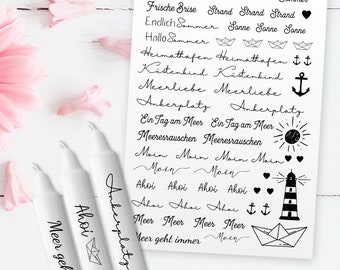 Sommer
Frische Brise Strand Strand
Endlich Sommer Sonne Sonne
Hallo Sommer
Heimathafen Heimathafen
Küstenkind Küstenkind
Meerliebe Meerliebe
Ankerplatz Ankerplatz
Ein Tag am Meer Ein Tag am Meer
Meeresrauschen Meeresrauschen
Moin Moin Moin Moin
Moin Moin
Ahoi Ahoi Ahoi Ahoi
Meer Meer Meer Meer
Meer geht immer Moin
Meer geht
Ahoi
Ankerplatz